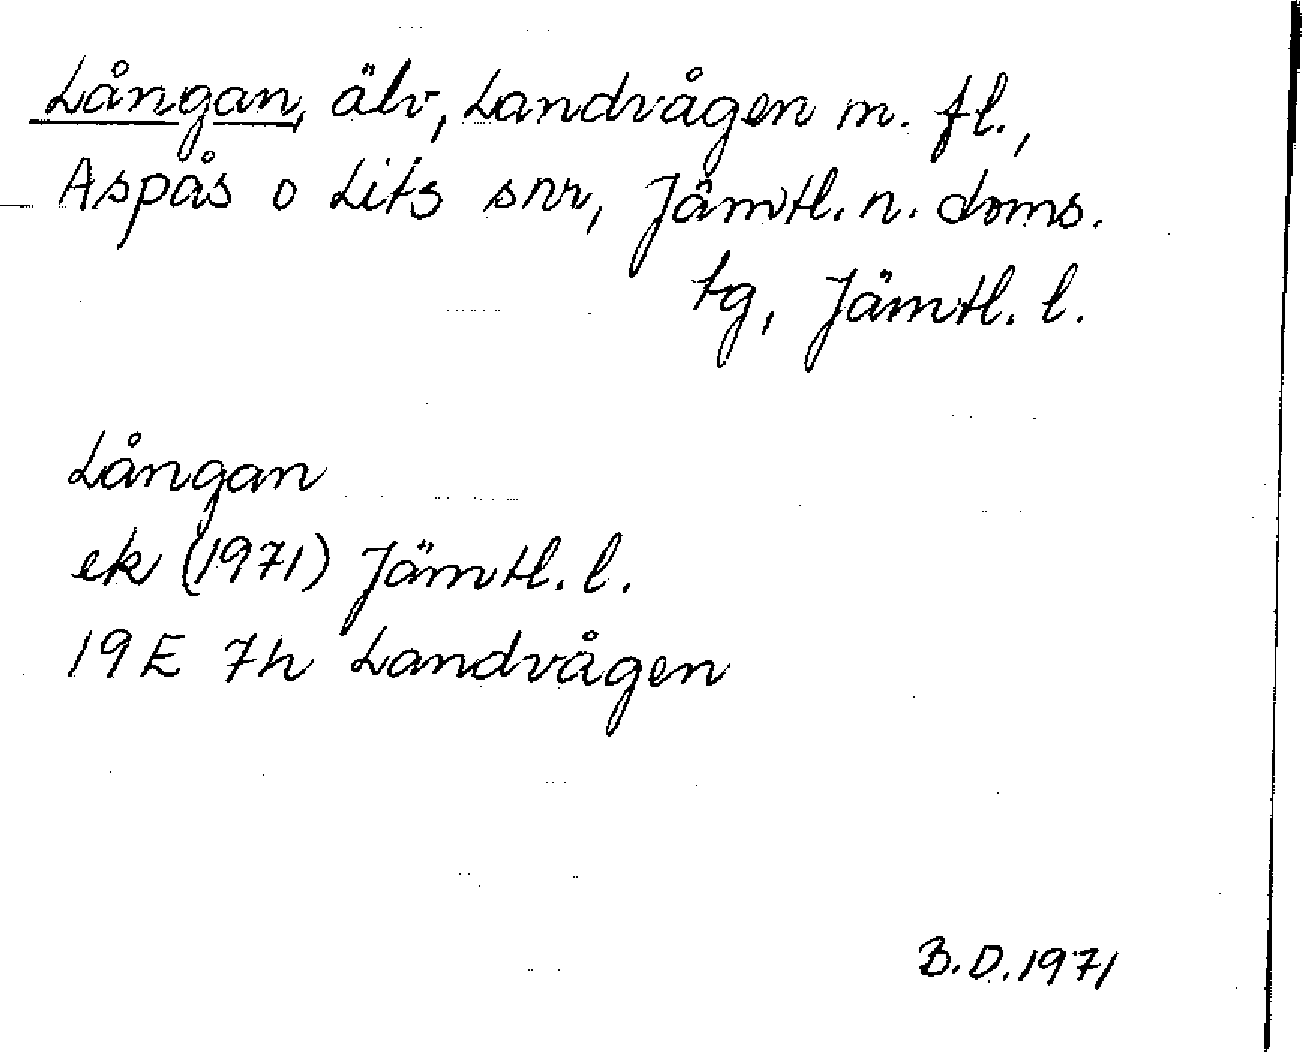 Långan, älv, Landvågen m. fl.,
Aspås o Lits snr, Jämtl. n. doms.
tg, Jämtl. l.
Långan
ek (1971) Jämtl. l.
19E 7h Landvågen
B.D. 1971